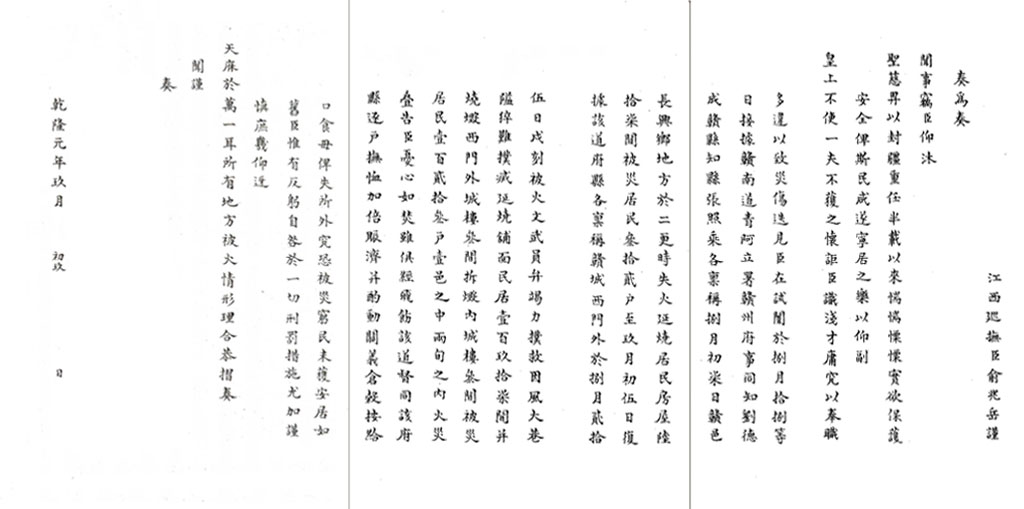 江西廵撫臣俞兆岳謹
奏爲奏
聞事竊臣仰沐
聖慈畀以封疆重任半載以來惴惴慄慄實欲保護
安全俾斯民咸遂寧居之樂以仰副
皇上不使一夫不獲之懷詎臣識淺才庸究以奉職
多違以致災傷迭見臣在試闈於捌月拾捌等
日接據贛南道青阿立署贛州府事同知劉德
成贛縣知縣張照乘各禀稱捌月初柒日贛邑
長興鄉地方於二更時失火延燒居民房屋陸
拾柒間被災居民叁拾貳户至玖月初伍日復
據該道府縣各禀稱贛城西門外於捌月貳拾
伍日戌刻被火文武員弁竭力撲救因風大巷
隘綽難撲滅延燒舖面民居壹百玖拾柒間并
燒燬西門外城樓叁間拆燬内城樓叁間被災
居民壹百貳拾叁户壹邑之中兩旬之内火災
叠告臣憂心如焚雖俱經飛飭該道督同該府
縣逐户撫恤加倍賑濟并酌動關義倉穀按
口食毋俾失所外究恐被災窮民未獲安居如
舊臣惟有反躬自咎於一切刑罰措施尤加謹
慎庶幾仰迓
天庥於萬一耳所有地方被火情形理合恭摺奏
聞謹
奏
乾隆元年玖月 初玖 日